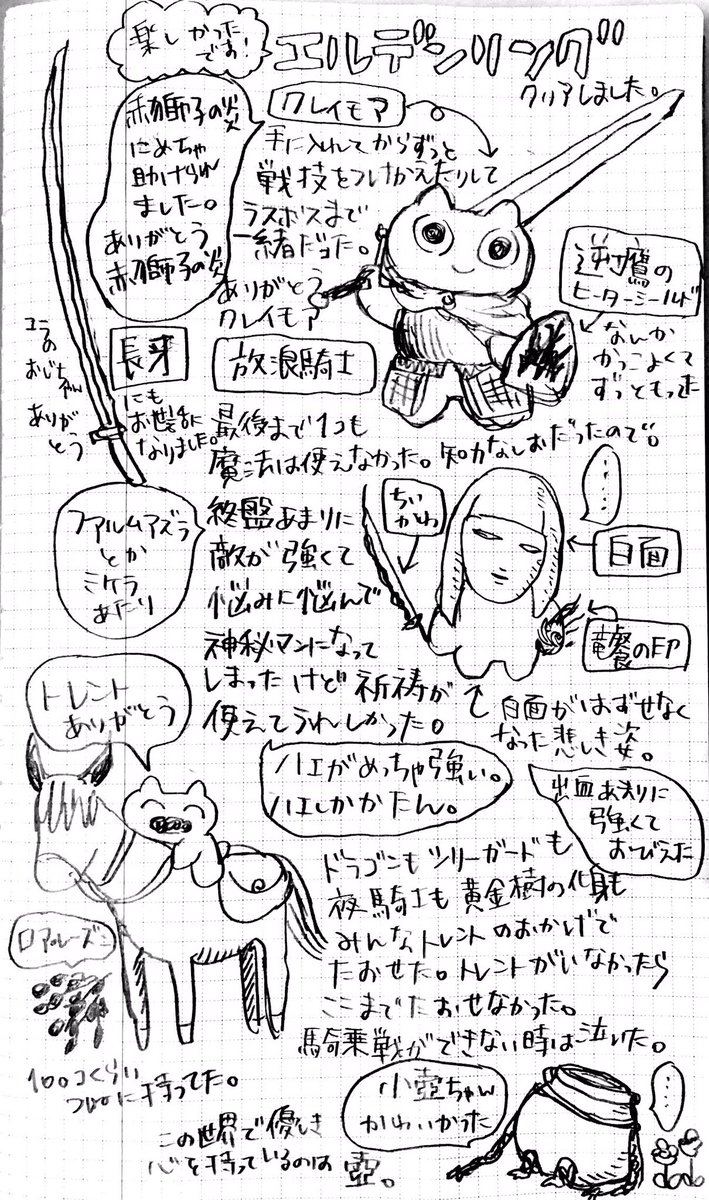 楽しかった
です!
エルデンリング
クリアしました。
赤獅子の炎
にめちゃ
助けられ
ました。
ありがとう
赤獅子の炎
クレイモア
手に入れてからずっと
戦技をつけかえたりして
ラスボスまで
一緒だった。
ありがとう
クレイモア
逆さ鷹の
ヒーターシールド
なんか
かっこよくて
ずっともってた
長牙
ユラ
の
おじちゃん
ありが
とう
にも
お世話に
なりました。
放浪騎士
最後まで1コも
魔法は使えなかった。知力なしおだったので。
ファルムアズラ
とか
ミケラ
あたり
終盤あまりに
敵が強くて
悩みに悩んで
神秘マンになって
しまったけど祈祷が
使えてうれしかった。
ちい
かわ
……
白面
白面がはずせなく
なった悲しき姿。
トレント
ありがとう
ハエがめっちゃ強い。
ハエしかかたん。
出血あまりに
強くて
おびえた
ドラゴンもツリーガードも
夜騎士も黄金樹の化身も
みんなトレントのおかげで
たおせた。トレントがいなかったら
ここまでたおせなかった。
騎乗戦ができない時は泣いた。
ロアレーズン
100コくらい
つねに持ってた。
小壺ちゃん
かわいかった
……
この世界で優しき
心を持っているのは 壺。